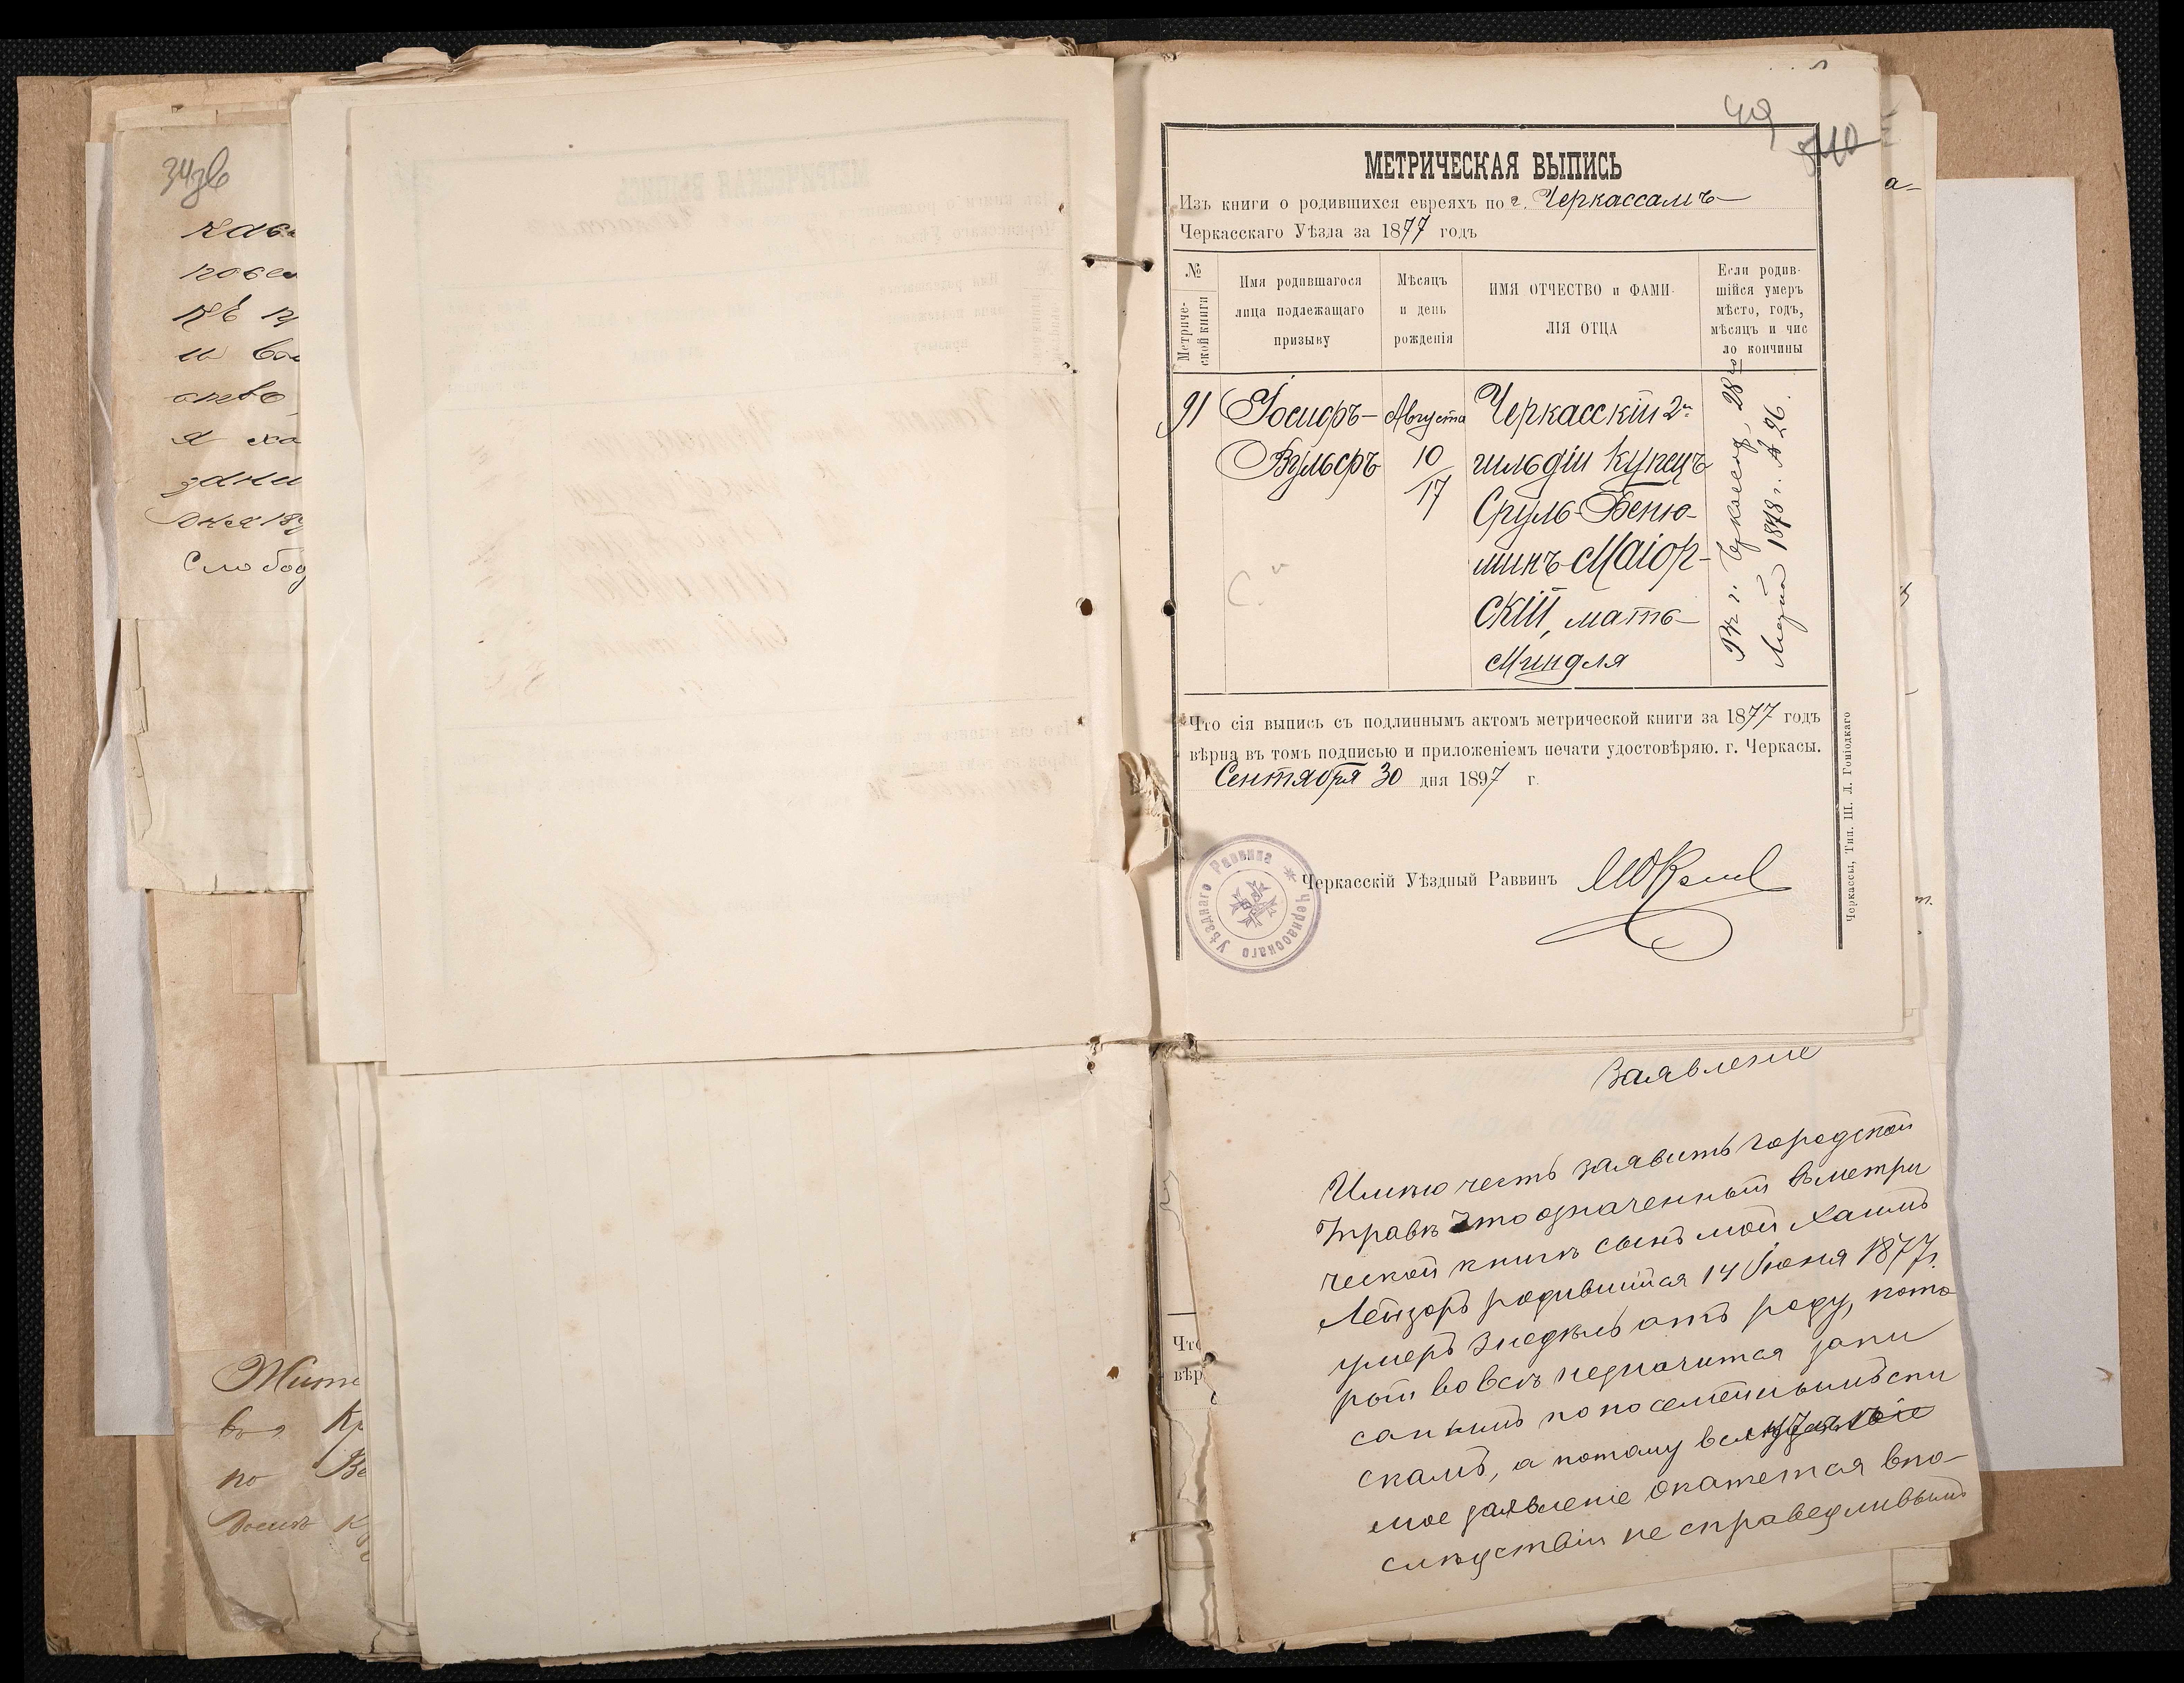 34зв
кав
повел
къ
и
я
дня 189
Слобод
Жит
по
49
МЕТРИЧЕСКАЯ ВЫПИСЬ
Изъ книги о родившихся евреяхъ по г. Черкассамъ
Черкасскаго Уѣзда за 1877 годъ
№ Метриче-
ской книги
Имя родившагося
лица подлежащаго
призыву
Мѣсяцъ
и день
рожденія
ИМЯ ОТЧЕСТВО и ФАМИ-
ЛІЯ ОТЦА
Если родив-
шійся умеръ
мѣсто, годъ,
мѣсяцъ и чис
ло кончины
91
Іосифъ-
Вульфъ
Августа
10
17
Черкасскій 2й
гильдіи купецъ
Сруль-Беню-
минъ Маіор-
скій, мать
Миндля
Въ г. Черкассахъ, 28го
1878 г. № 26.
Что сія выпись съ подлиннымъ актомъ метрической книги за 1877 годъ
вѣрна въ томъ подписью и приложеніемъ печати удостовѣряю. г. Черкасы.
Сентября 30 дня 1897 г.
Черкасскаго Уѣзднаго Раввина
Черкасскій Уѣздный Раввинъ
Черкассы, Тип. Ш. Л. Гоніодкаго
Заявление
Имѣю честь заявить городской
Управѣ что означенный в метри
ческой книгѣ сынъ мой Хаимъ
Лейзоръ родившійся 14 Іюня 1877 г.
умеръ 3 недѣль отъ роду, кото
рый вовсѣ незначится запи
саннымъ по посемейнымъ спи
скамъ, а потому если
мое заявленіе окажется впо-
слѣдствіи не справедливымъ
Что
вѣр